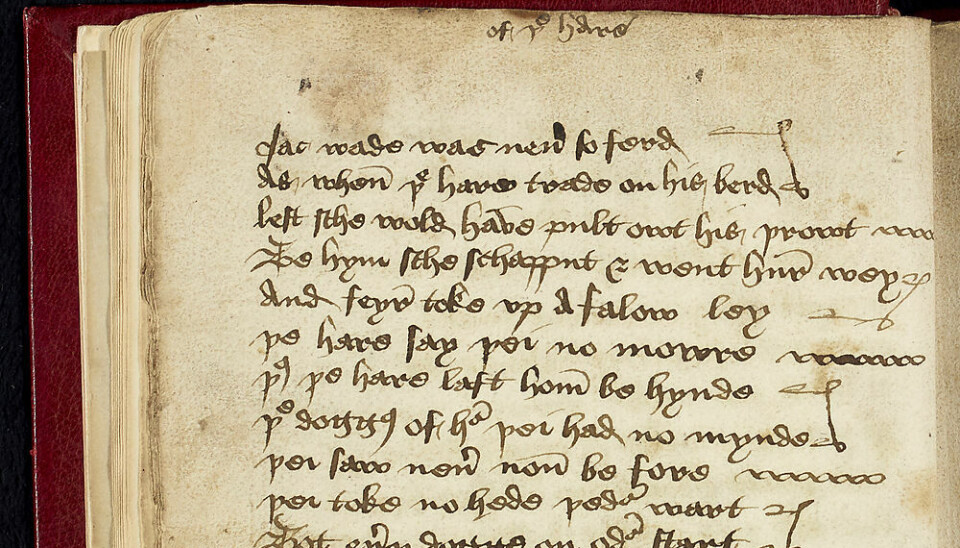 of þe hare
Jac wade was neuer so ferd
As when þe hare trade on his berd
lest sche wold haue puld owt his þrowt
Be hym sche schapput & went hur wey
And feyr toke vp A falow ley
þe hare say þei no mowre
þus þe hare laft hom be hynde
þe doggus of her þei had no mynde
þei saw neuer non be fore
þei toke no hede þeder wart
Bot euery dogge on oder start